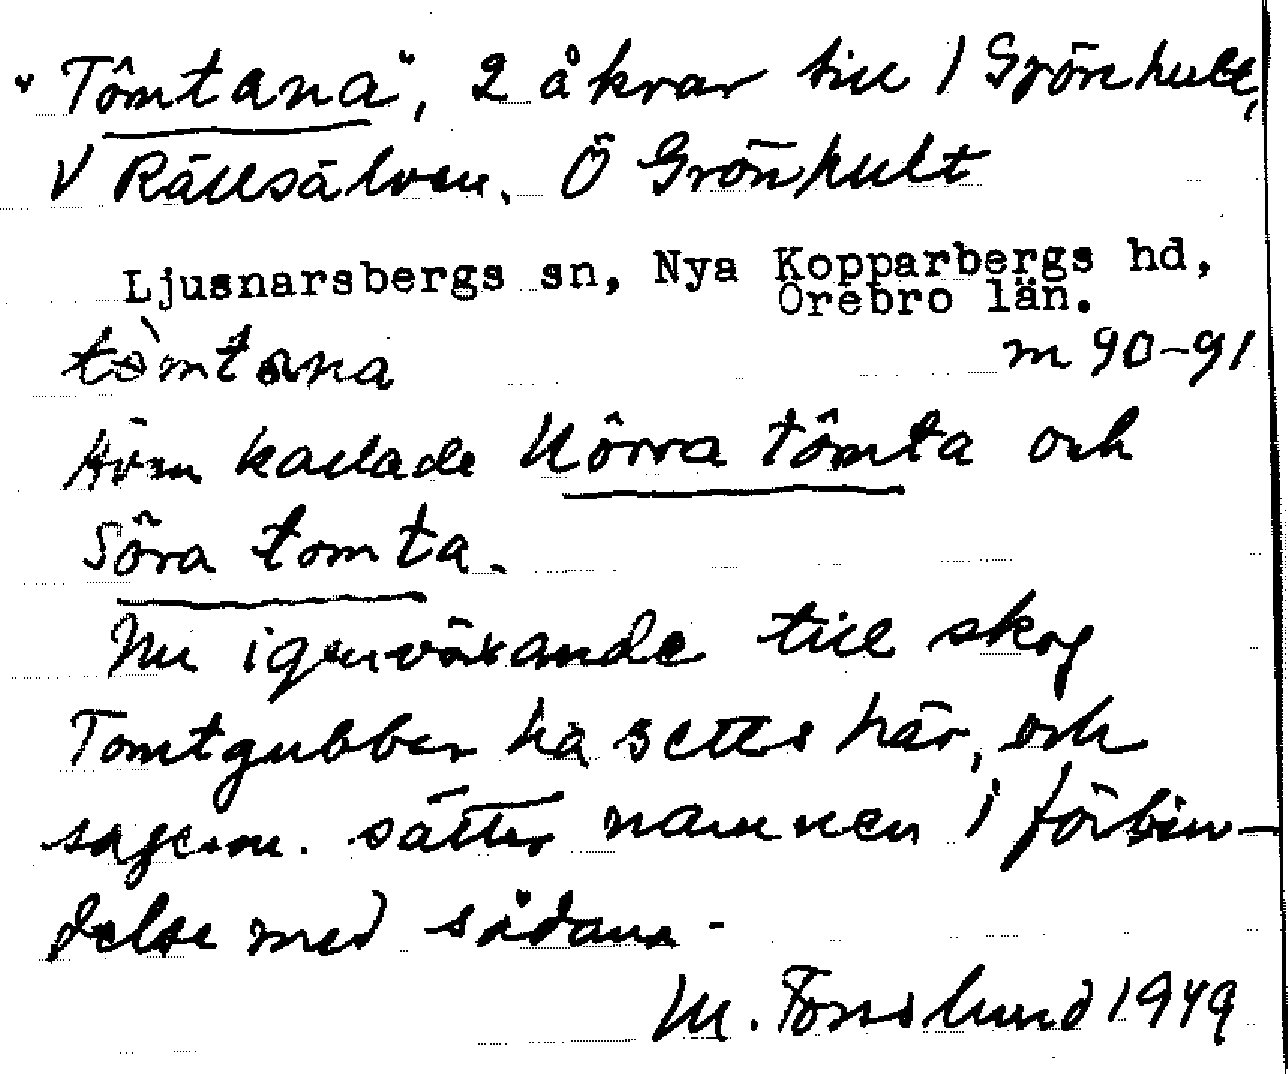 "Tômtana", 2 åkrar till 1 Grönhult,
V Rällsälven. Ö Grönhult
Ljusnarsbergs sn, Nya Kopparbergs hd,
Örebro län.
tòmtana m 90-91
Även kallade Nôrra tômta och
Sôra tomta.
Nu igenväxande till skog
Tomtgubbar ha setts här, och
sagesm. sätter namnen i förbin-
delse med sådana.
M. Fonslund 1949